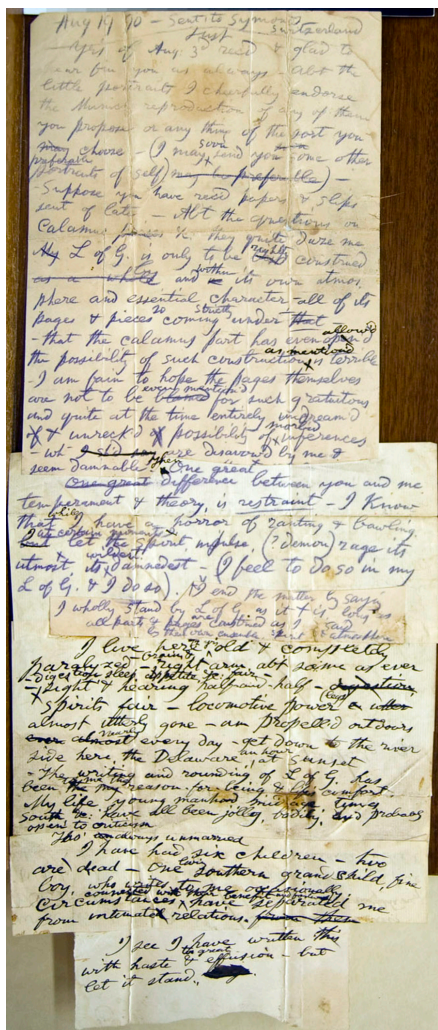 Aug 19 '90 - Sent to Symonds
Last Switzerland
Yrs of Aug 3d rec'd & glad to
hear from you as always - Abt the
little portrait I cheerfully endorse
the Munich reproduction of any of them
you propose or any thing of the sort you
may choose - (I may soon send you some other
preferable portraits of self) may be preferable) -
- Suppose you have rec'd papers & slips
sent of late - Abt the questions on
Calamus pieces &c. they quite daze me
L of G. is only to be rightly construed
as a whole by and within its own atmos
phere and essential character - all of its
pages & pieces so coming strictly under that
- that the calamus part has even allow'd
the possibility of such construction as mention'd is terrible
- I am fain to hope the pages themselves
are not to be even mention'd for such gratuitous
and quite at the time entirely undream'd
& unreck'd possibility of morbid inferences
- wh' are disavow'd by me &
seem damnable. Then one great
difference between you and me
temperament & theory, is restraint - I know
that while I have a horror of ranting & bawling
I at certain moments let the spirit impulse, (? demon) rage its
utmost its wildest, damnedest - (I feel to do so in my
L of G. & I do so). I end the matter by saying
I wholly stand by L of G. as it is, long as
all parts & pages construed as I said
by their own ensemble, spirit & atmosphere
I live here 72 old & completely
paralyzed - brain & right arm abt same as ever
- digestion, sleep, appetite, &c: fair -
- sight & hearing half-and-half - digestion
- spirits fair - locomotive power (legs)
almost utterly gone - am propell'd outdoors
nearly every day - get down to the river
side here, the Delaware, an hour at sunset
- The writing and rounding of L of G, has
been to me the reason-for-being, & life comfort
My life, young manhood, mid-age, times
South &c: have all been jolly, bodily, and probably
open to criticism
Tho' always unmarried
I have had six children - two
are dead - one living southern grandchild, fine
boy, who writes to me occasionally
circumstances connected with their benefit and fortune have separated me
from intimate relations.
I see I have written this
with haste & too great effusion - but
let it stand.